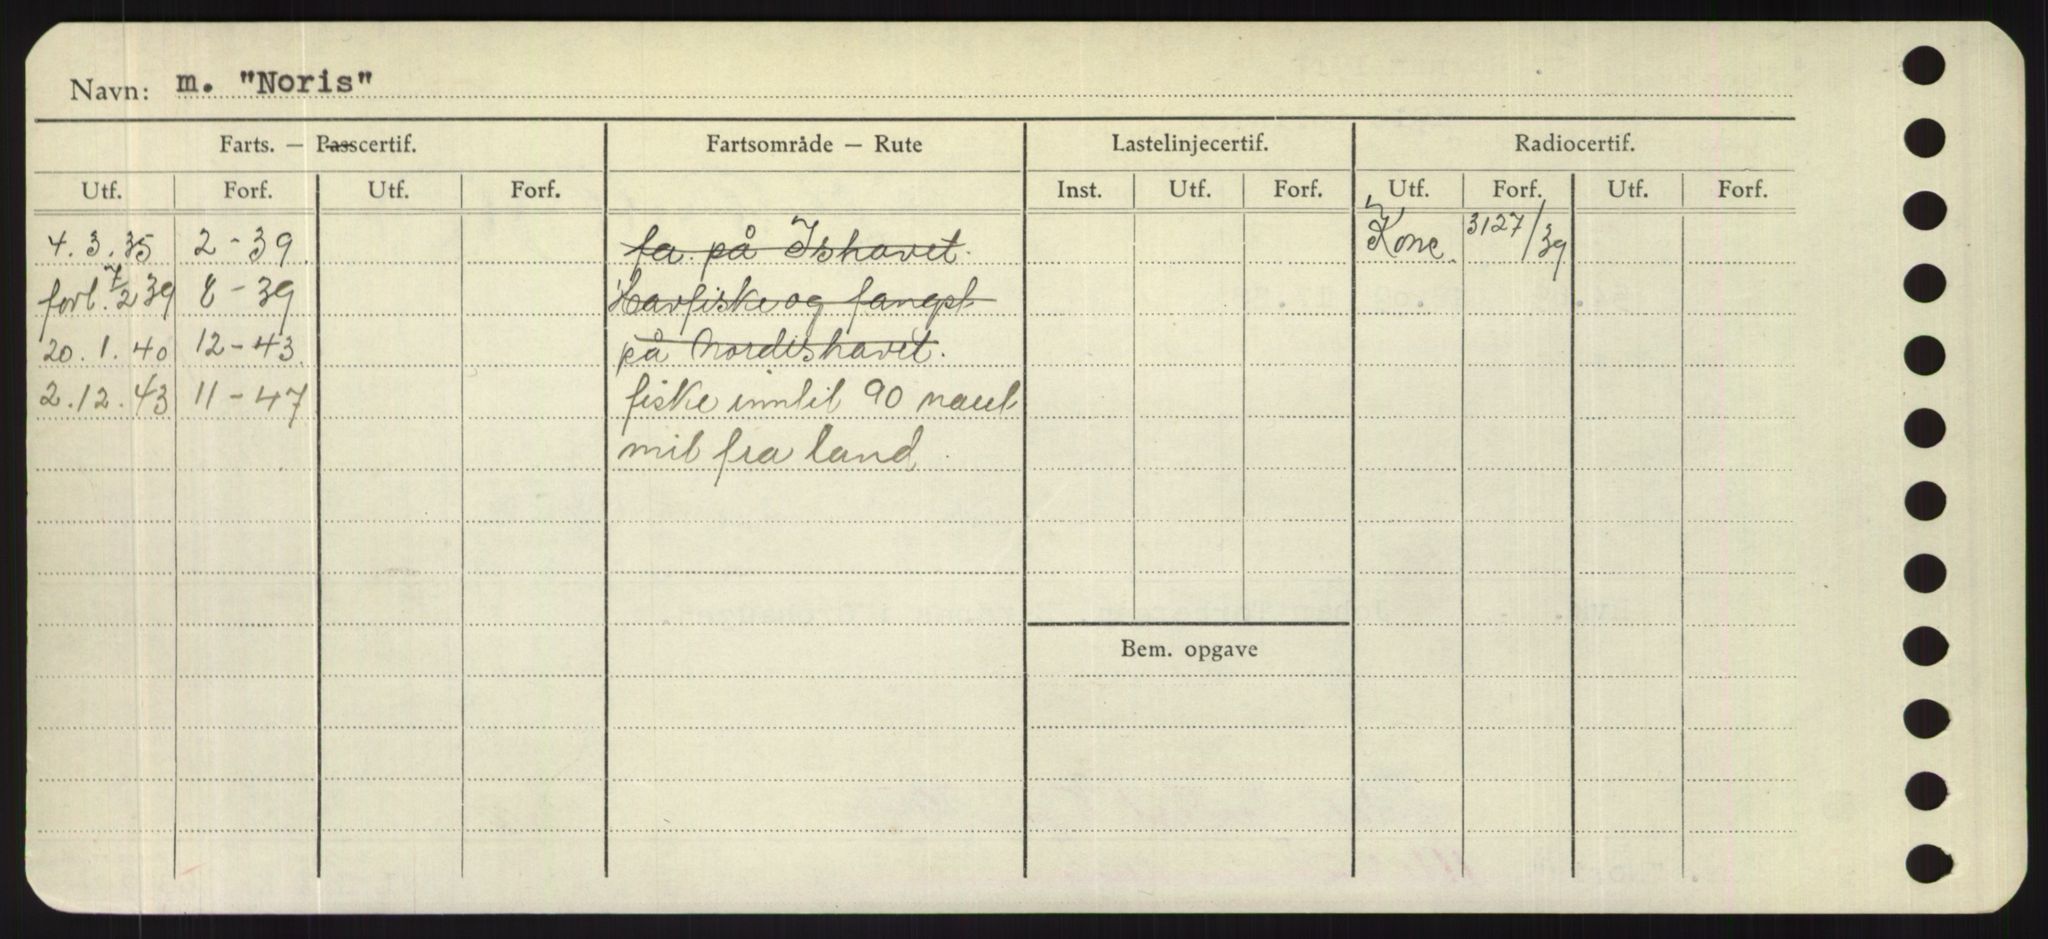 Navn: m. "Noris"
Farts. — Passcertif. Fartsområde — Rute Lastelinjecertif. Radiocertif.
Utf. Forf. Utf. Forf. Inst. Utf. Forf. Utf. Forf. Utf. Forf.
4.3.35 2-39 fa. på Ishavet. Konc. 3127/39
forl. 7/2 39 8-39 Havfiske og fangst
20.1.40 12-43 på Nordishavet.
2.12.43 11-47 fiske inntil 90 naut
mil fra land
Bem. opgave